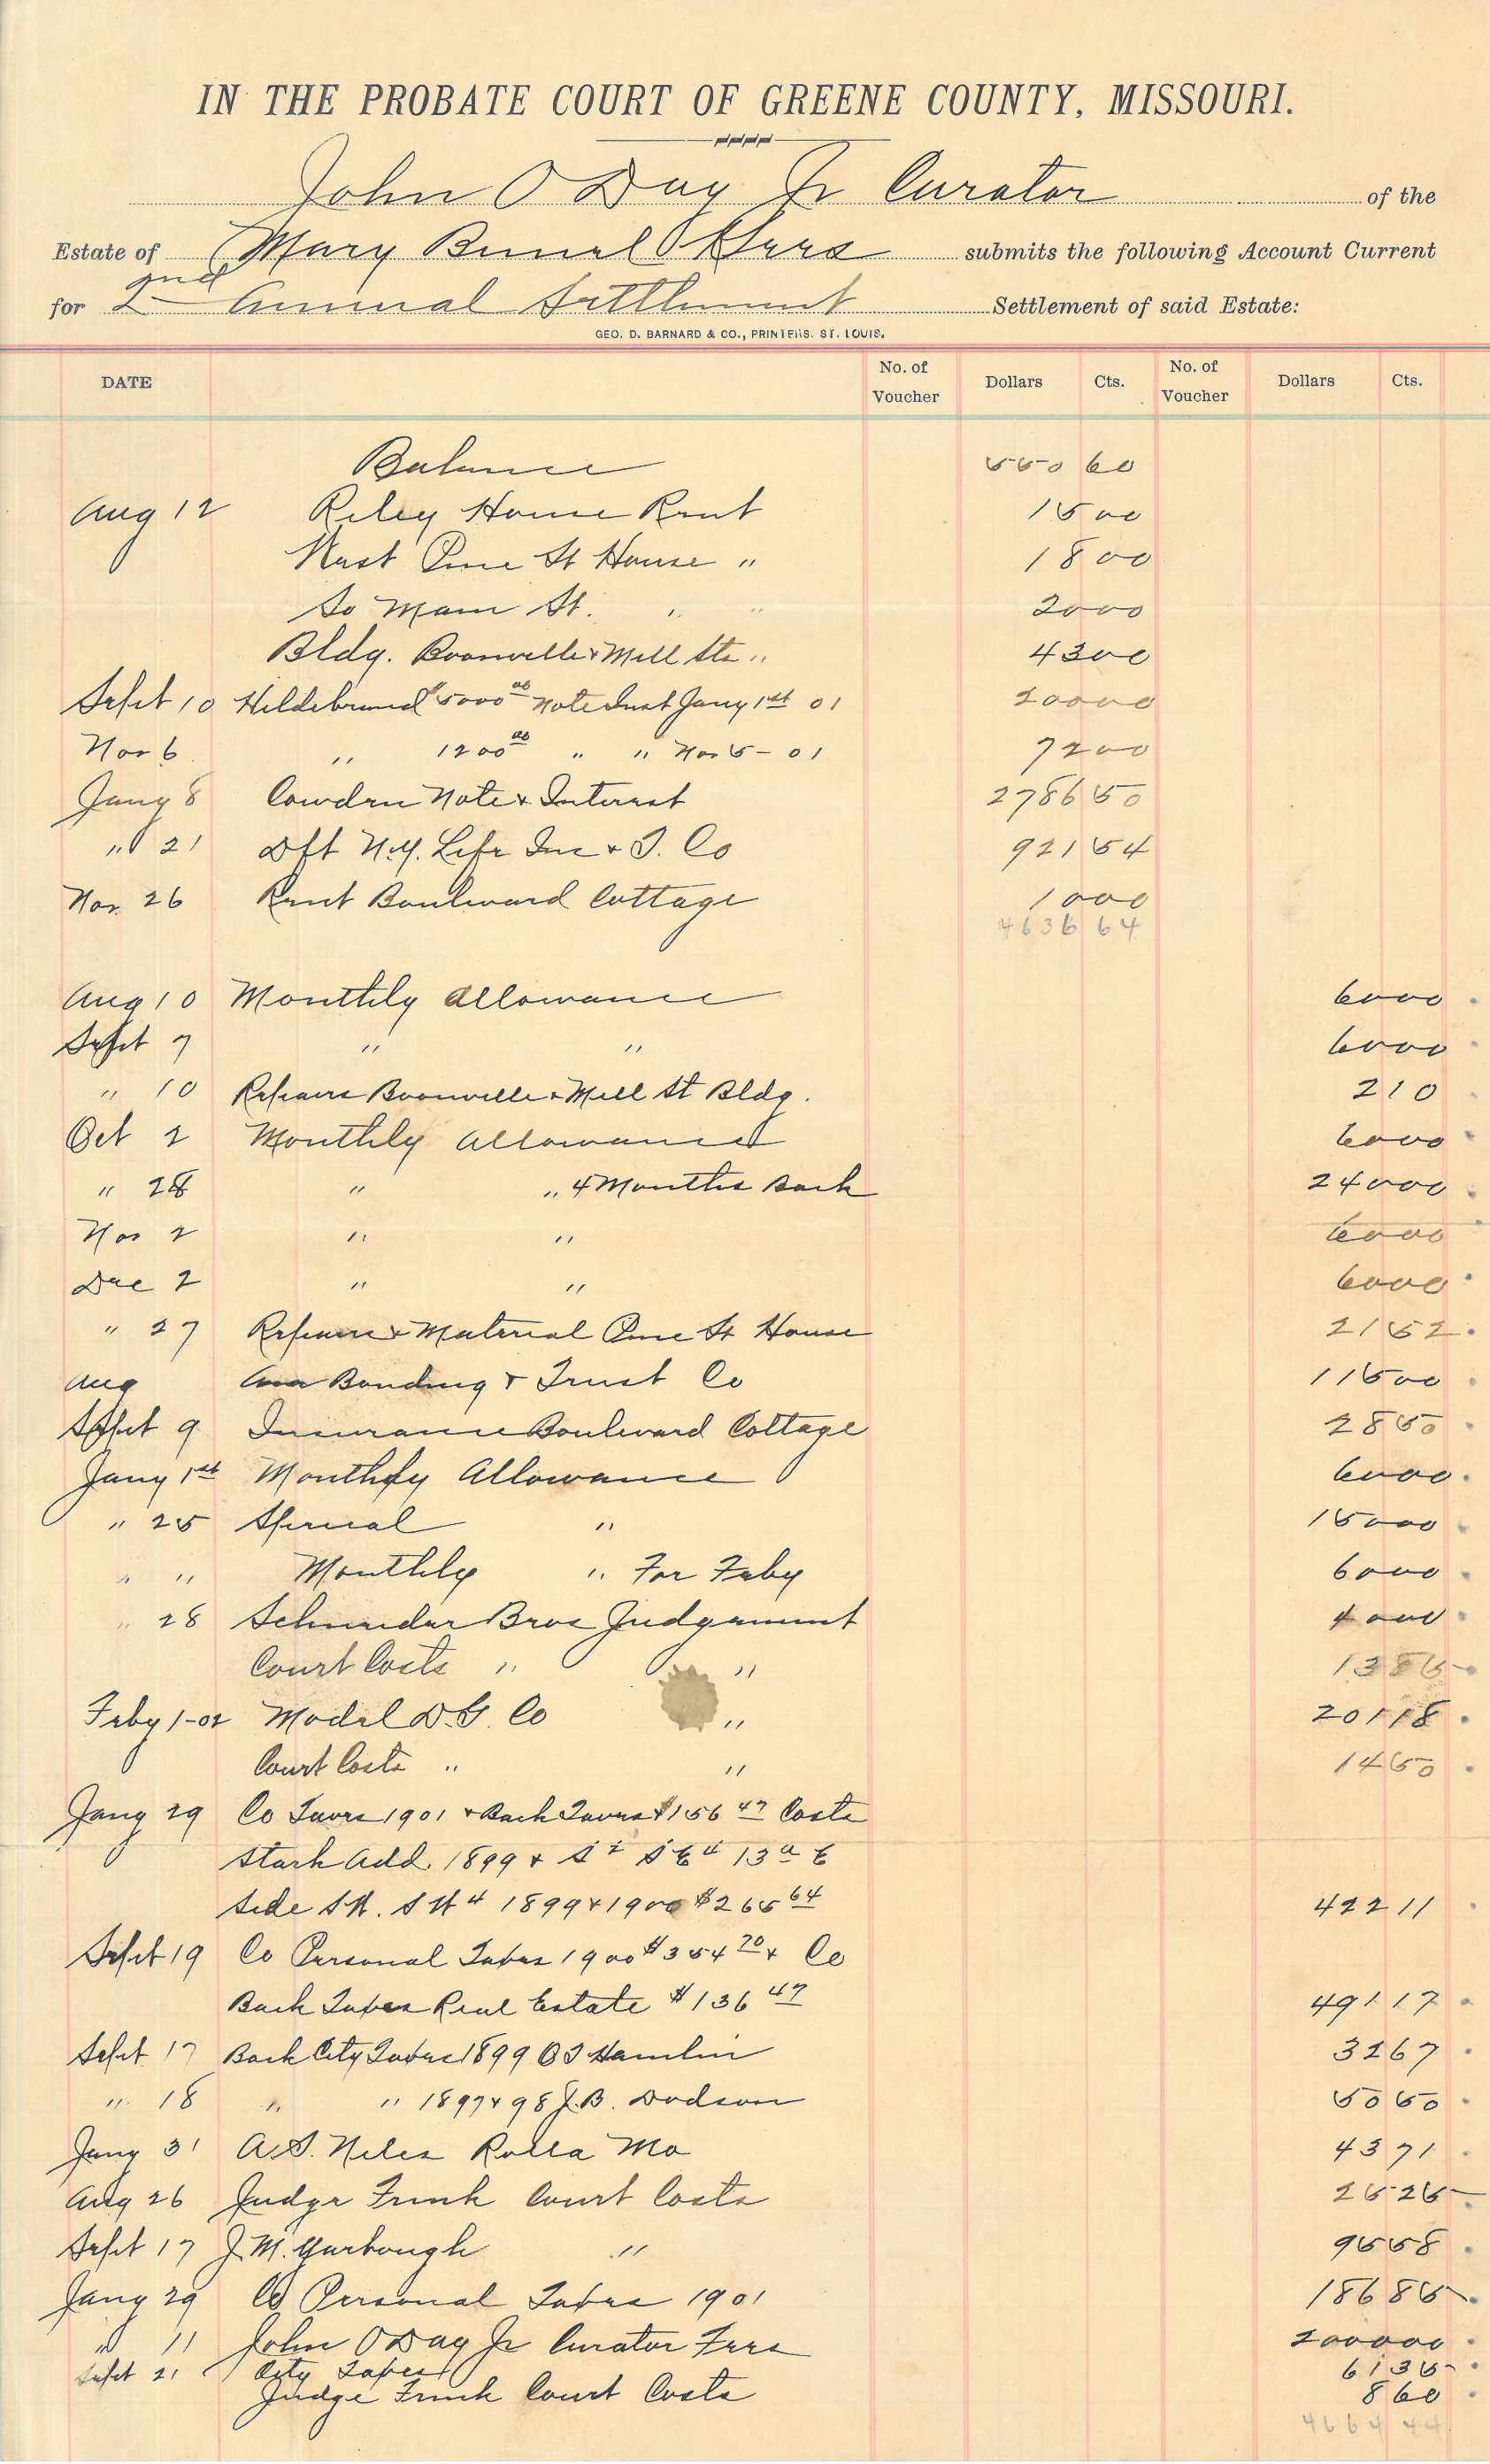 IN THE PROBATE COURT OF GREENE COUNTY, MISSOURI.
John O Day Jr Curator of the
Estate of Mary submits the following Account Current
for 2nd Annual Settlement Settlement of said Estate:
GEO. D. BARNARD & CO., PRINTERS. ST. LOUIS.
DATE No. of Voucher Dollars Cts. No. of Voucher Dollars Cts.
Balance 550 60
Aug 12 Riley House Rent 15 00
West Pine St House " 18 00
So Main St. " " 20 00
Bldg. Boonville & Mill Sts " 43 00
Sept 10 Hildebrand $5000 00 Note Inst Jany 1st 01 200 00
Nov 6 " 1200 00 " " Nov 5 - 01 72 00
Jany 8 Cowden Note & Interest 2786 50
" 21 Dft N.Y. Life Ins & T. Co 921 54
Nov. 26 Rent Boulevard Cottage 10 00
4636 64
Aug 10 Monthly Allowance 60 00
Sept 7 " " 60 00
" 10 Repairs Boonville & Mill St Bldg. 2 10
Oct 2 Monthly Allowance 60 00
" 28 " " 4 Months Back 240 00
Nov 2 " " 60 00
Dec 2 " " 60 00
" 27 Repairs & Material Pine St House 21 52
Aug Am Bonding & Trust Co 115 00
Sept 9 Insurance Boulevard Cottage 28 50
Jany 1st Monthly Allowance 60 00
" 25 Special " 150 00
" " Monthly " For Feby 60 00
" 28 Schneider Bros Judgement 40 00
Court Costs " " 13 85
Feby 1-02 Model D.G. Co " 201 18
Court Costs " " 14 50
Jany 29 Co Taxes 1901 & Back Taxes $156 47 Costs
Stark Add. 1899 & S 2 S E 4 13 a E
Side S W. S W 4 1899 & 1900 $265 64 422 11
Sept 19 Co Personal Taxes 1900 $354 70 & Co
Back Taxes Real Estate $136 47 491 17
Sept 17 Back City Taxes 1899 Hamlin 32 67
" 18 " " 1897 & 98 J.B. Dodson 50 50
Jany 31 A.S. Niles Rolla Mo 43 71
Aug 26 Judge Frink Court Costs 25 25
Sept 17 J.M. Yarbough " 95 58
Jany 29 Co Personal Taxes 1901 186 85
" 11 John O Day Jr Curator Fees 2000 00
Sept 21 City Taxes 61 35
Judge Frink Court Costs 8 60
4664 44